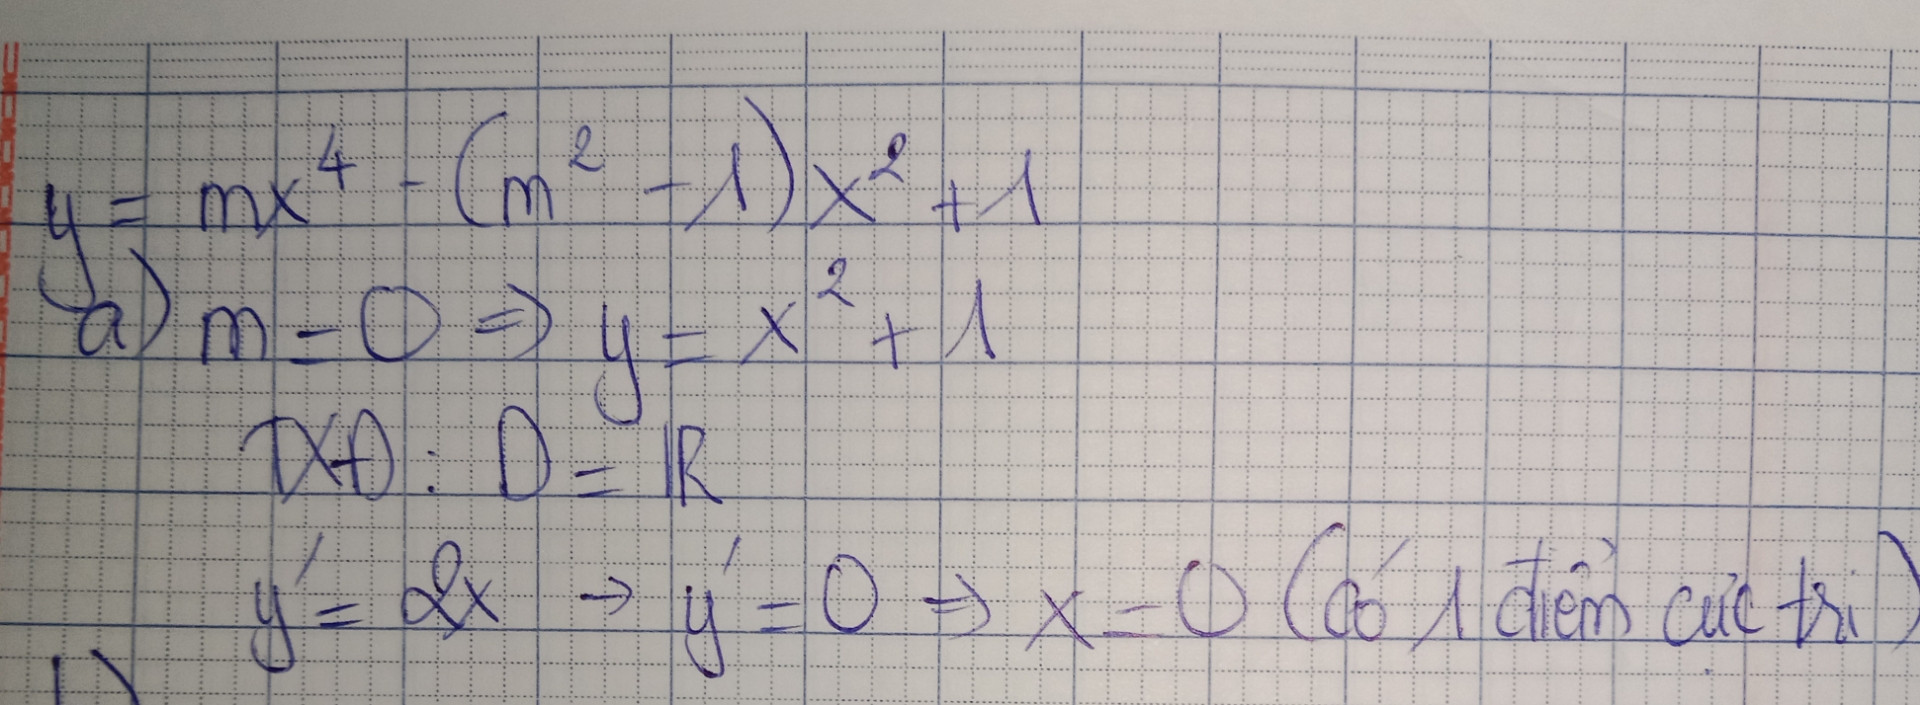 y = mx⁴ - (m² - 1)x² + 1
a) m = 0 => y = x² + 1
TXĐ: D = ℝ
y' = 2x → y' = 0 => x = 0 (có 1 điểm cực trị)